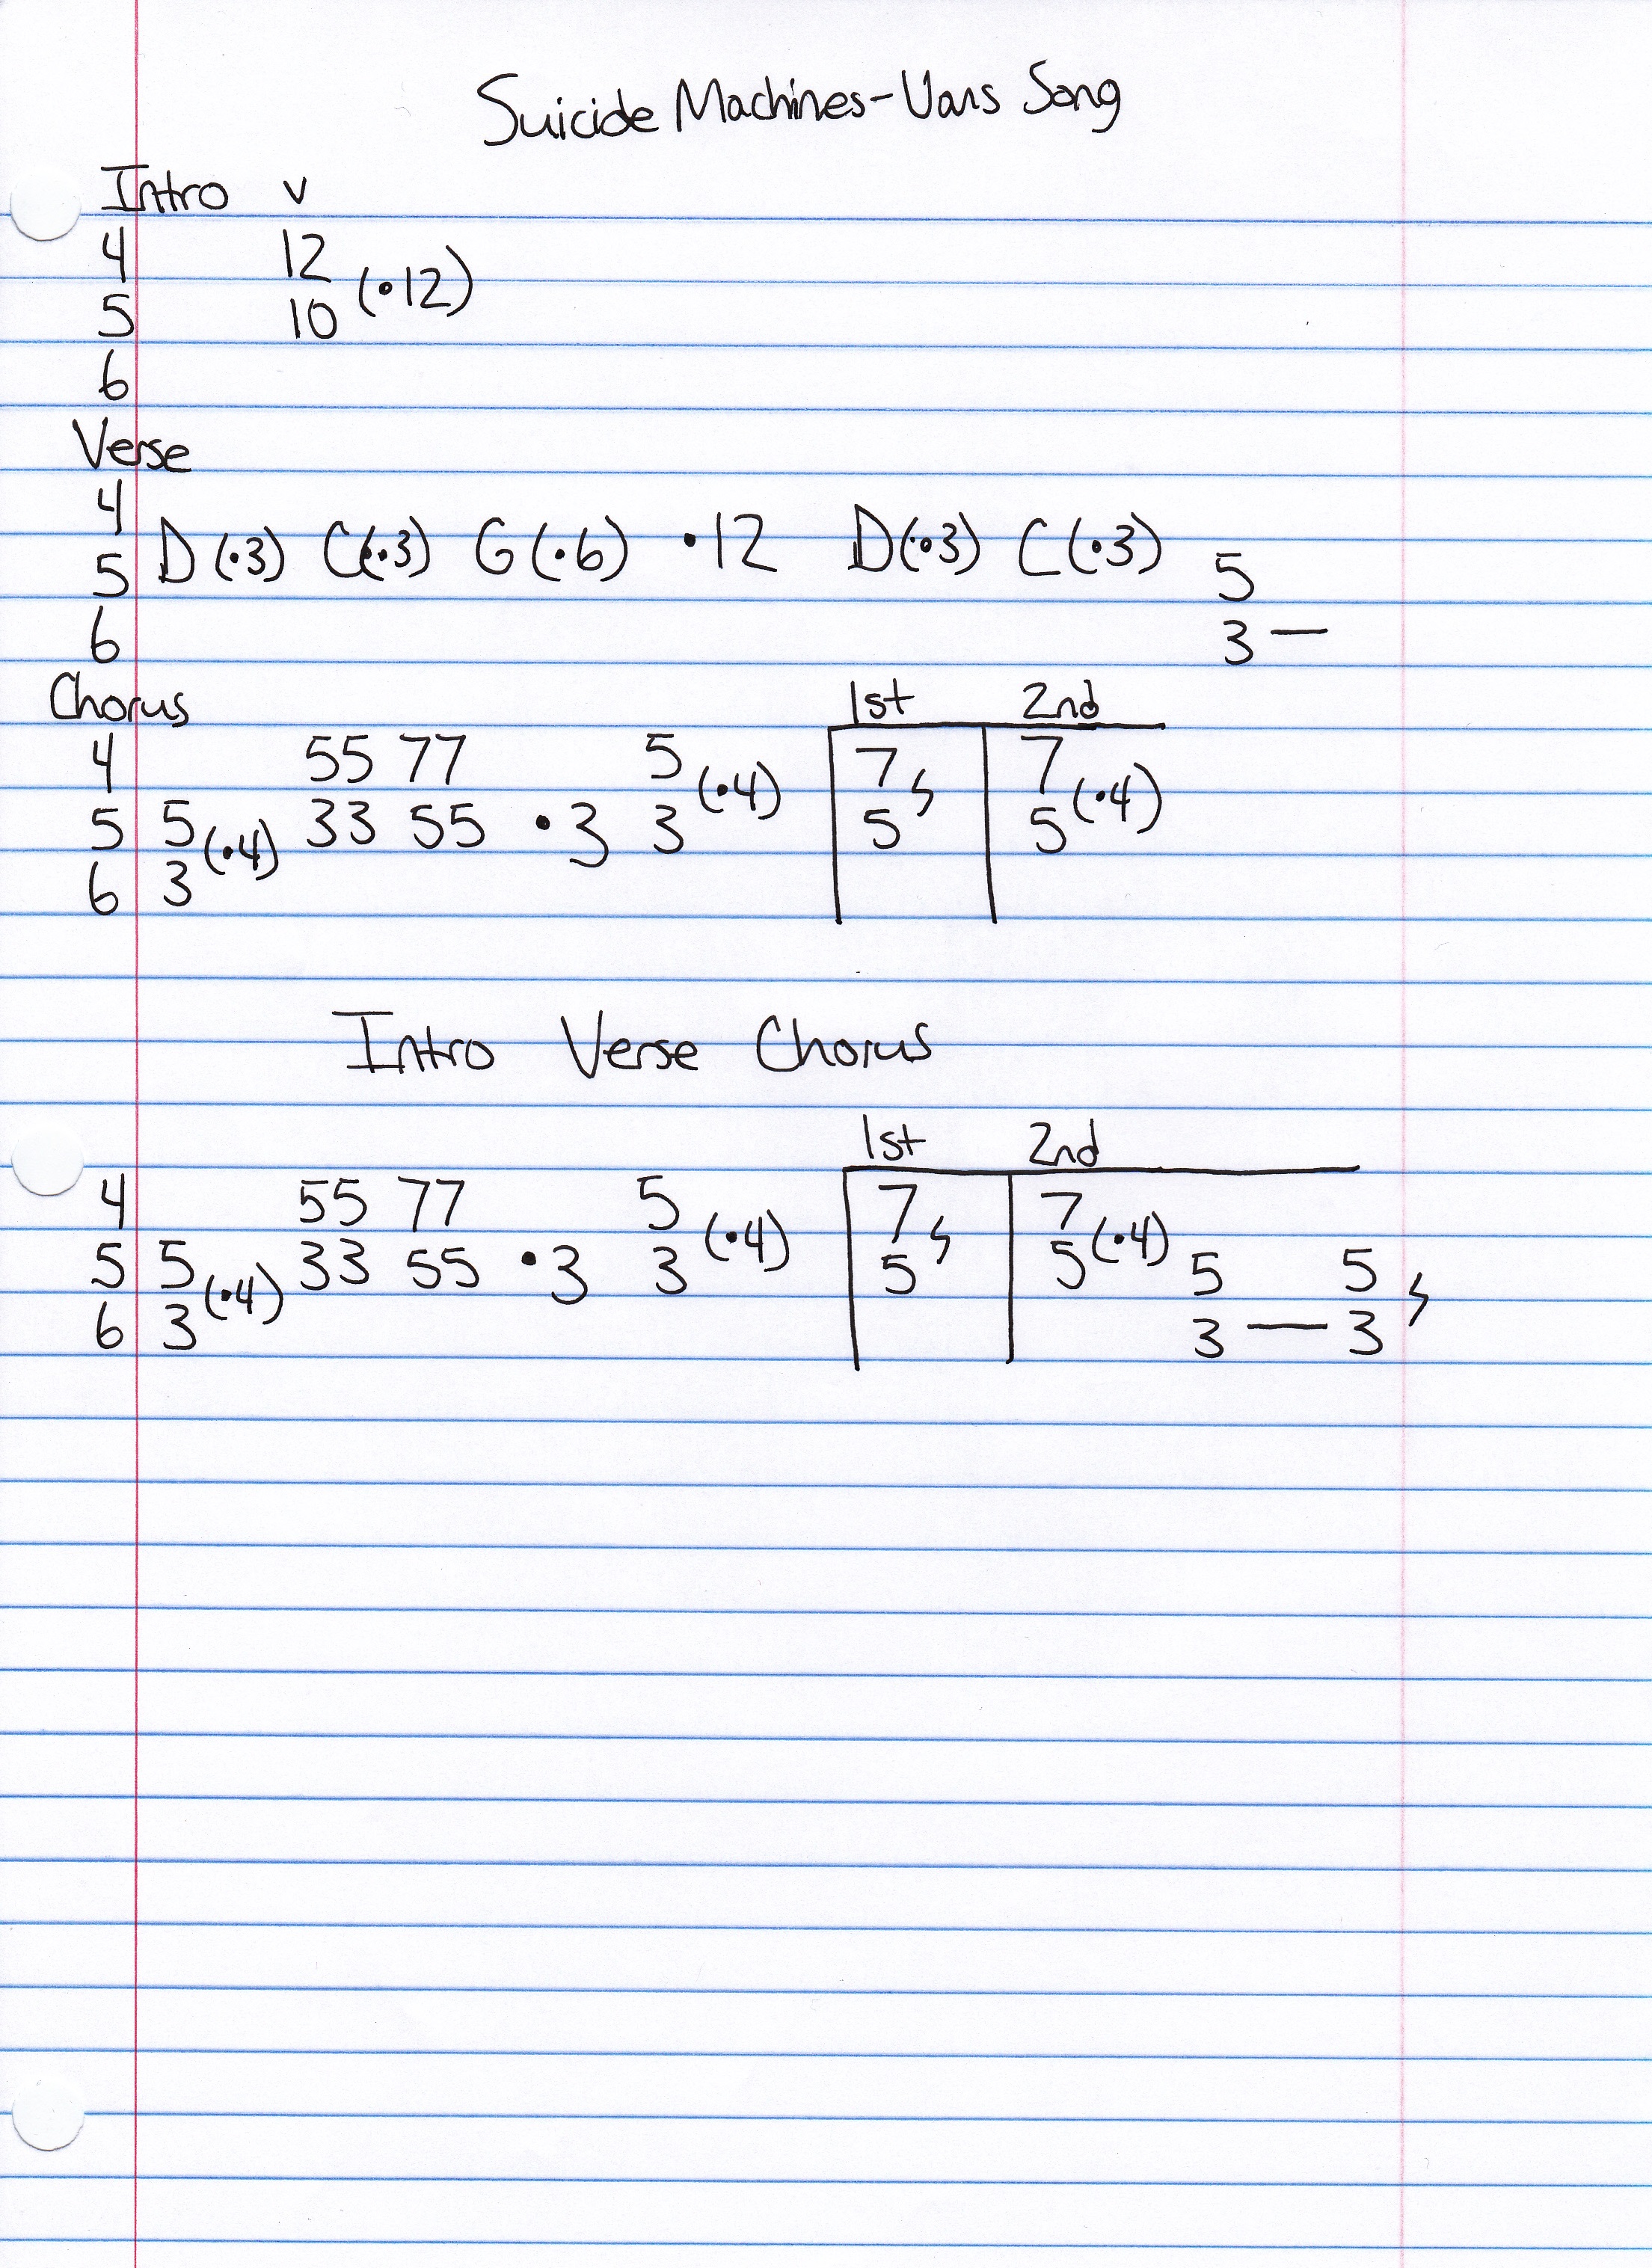 Suicide Machines-Vans Song
Intro v
4 12
5 10 (•12)
6
Verse
4
5 D (•3) C(•3) G(•6) •12 D(•3) C(•3) 5
6 3 —
Chorus 1st 2nd
4 55 77 5 (•4) 7 7
5 5 (•4) 33 55 •3 3 5 5 (•4)
6 3
Intro Verse Chorus
1st 2nd
4 55 77 5 (•4) 7 7
5 5 (•4) 33 55 •3 3 5 5 (•4) 5 5
6 3 3 — 3